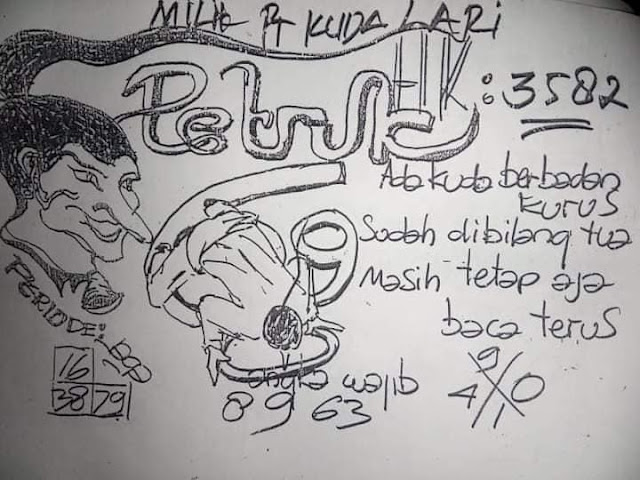 MILIK PT KUDA LARI
Petruk
HK: 3582
Ada kuda berbadan
kurus
Sudah dibilang tua
Masih tetap aja
baca terus
PERIODE:
16
38 79
angka wajib
8 9 63
9
4 0
1